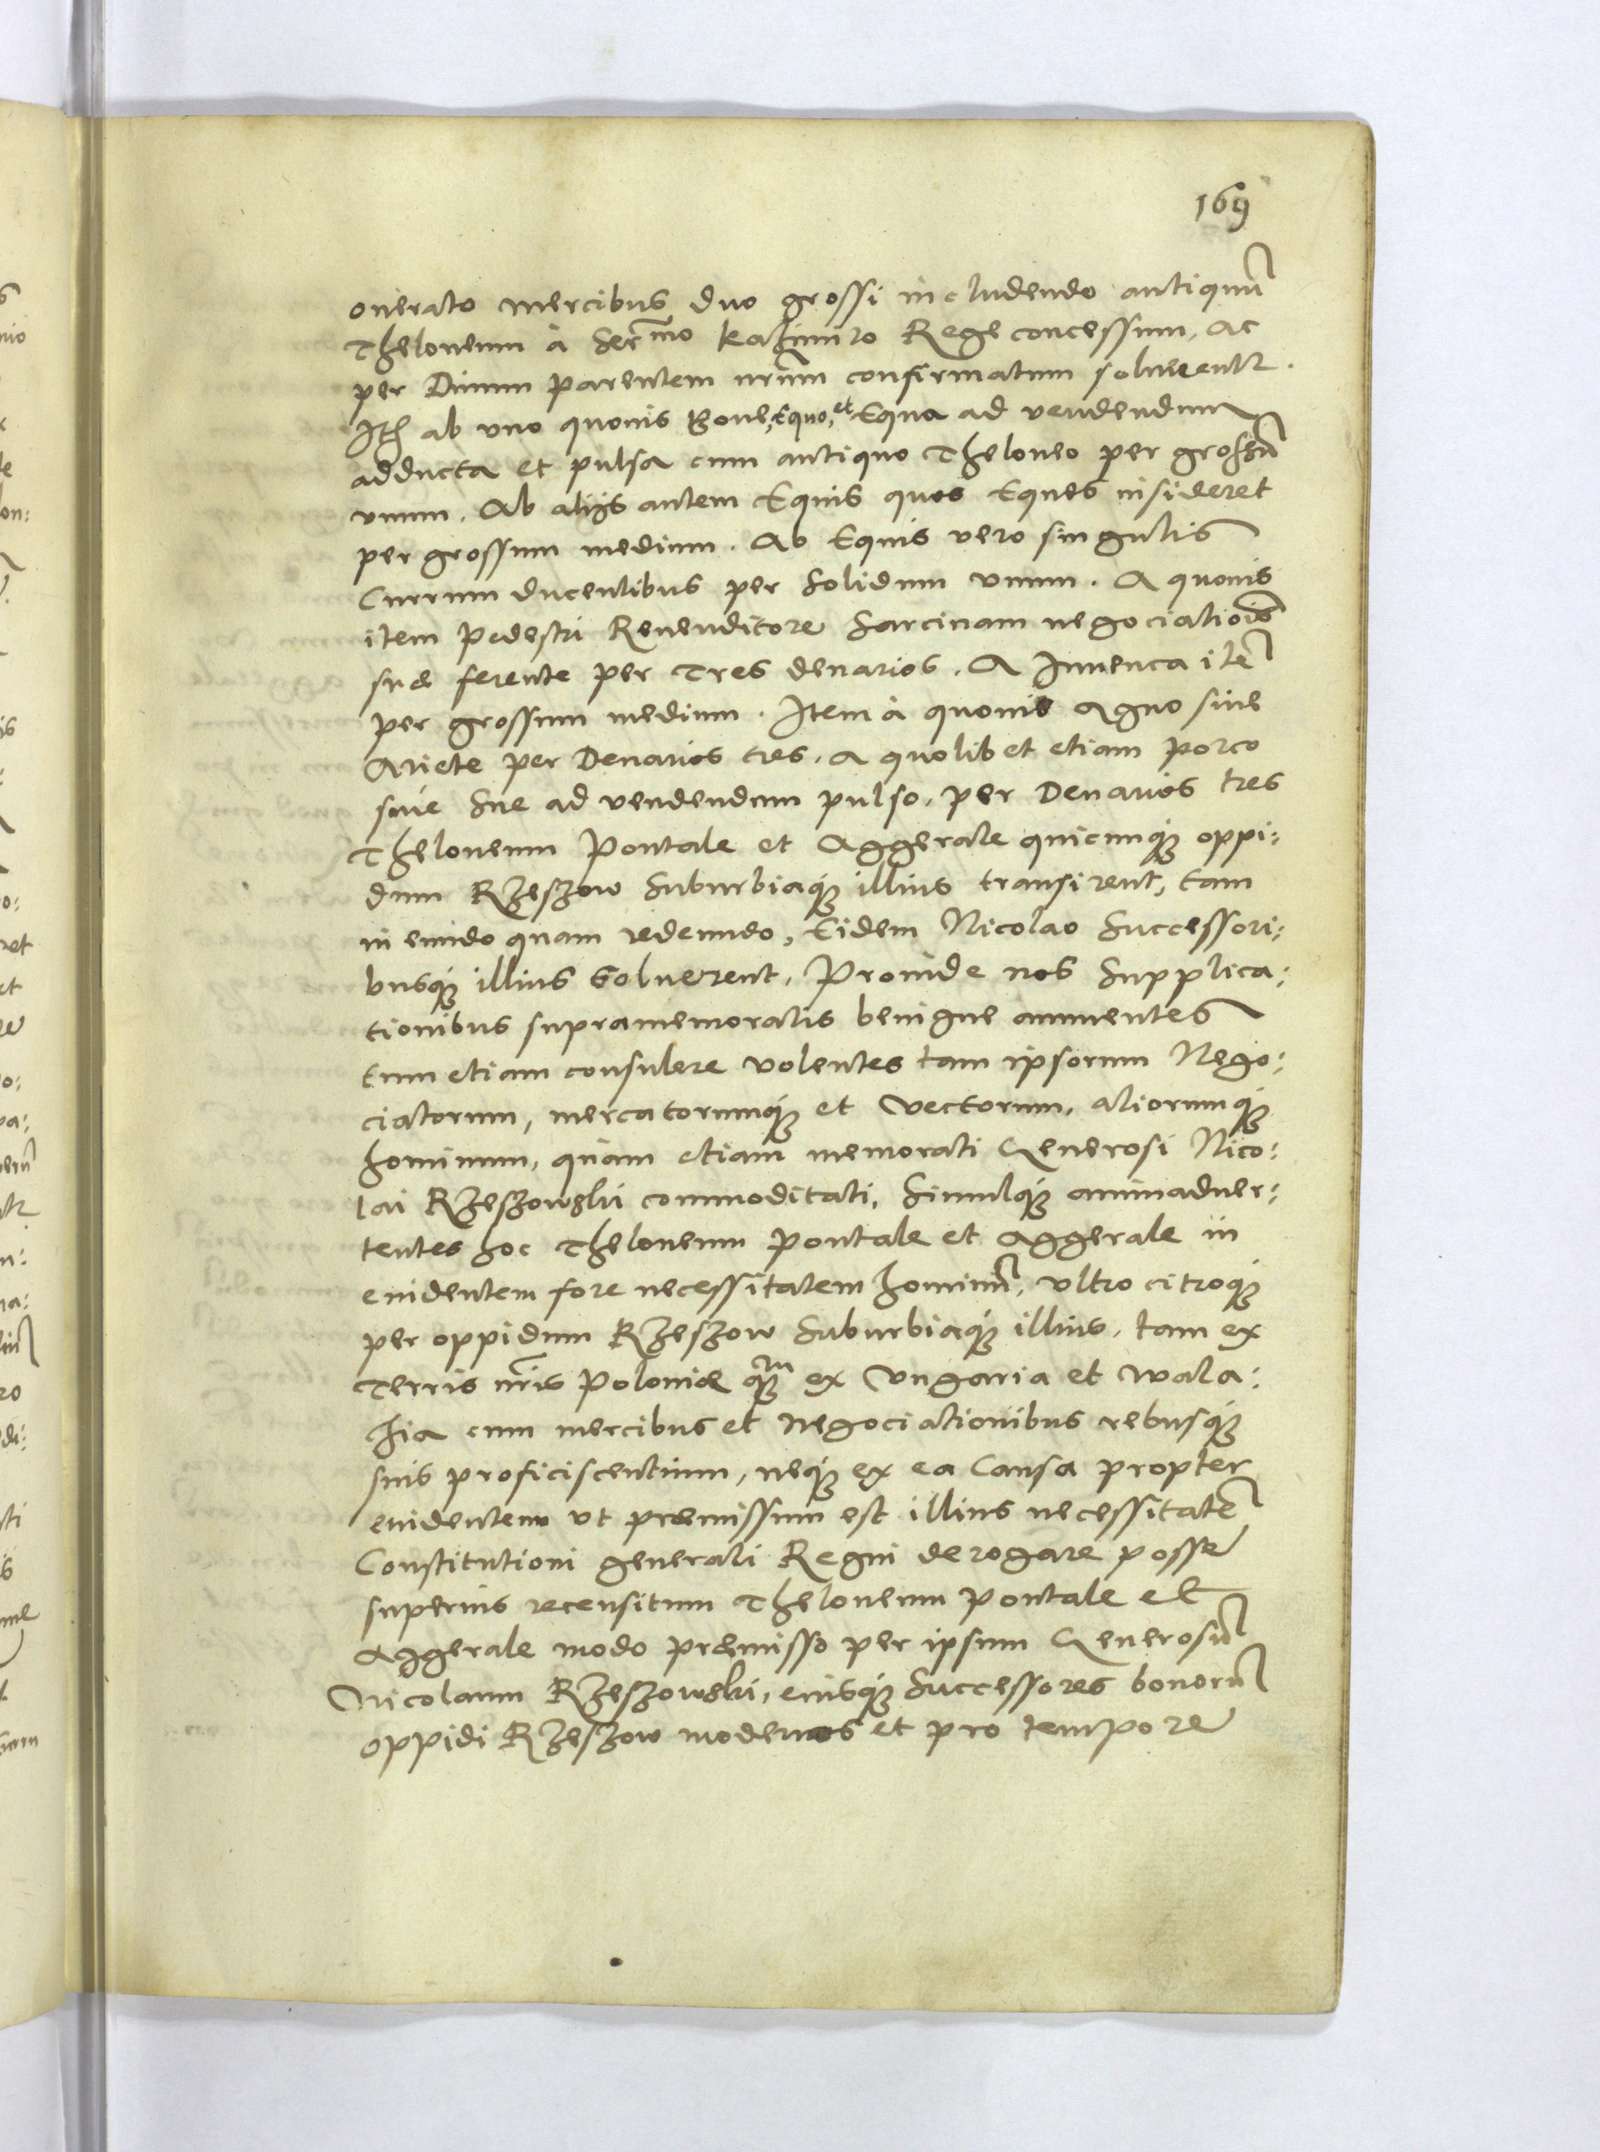 169
onerato mercibus duo grossi includendo antiquū
Theloneum à Serᵐᵒ Kazimiro Rege concessum, ac
per Diuum parentem nrūm confirmatum soluerentr.
Itē ab vno quouis Boue, Equo, et Equa ad vendendum
adducta et pulsa cum antiquo Theloneo per grossū
vnum. Ab alijs autem Equis quos Eques insideret
per grossum medium. Ab Equis vero singulis
Currum ducentibus per Solidum vnum. A quouis
item pedestri Reuenditore Sarcinam negociatiōis
suæ ferente per Tres denarios. A Iuuenca itē
per grossum medium. Item à quouis Agno siue
Ariete per Denarios tres. A quolibet etiam porco
siue Sue ad vendendum pulso, per Denarios tres
Theloneum Pontale et Aggerale quicunq; oppi:
dum Rzeszow Suburbiaq; illius transirent, tam
in eundo quam redeundo, Eidem Nicolao Successori:
busq; illius Soluerent. Proinde nos Supplica:
tionibus supramemoratis benigne annuentes
tum etiam consulere volentes tam ipsorum Nego:
ciatorum, mercatorumq; et Vectorum, aliorumq;
hominum, quàm etiam memorati Generosi Nico:
lai Rzeszowski commoditati, Simulq; animaduer:
tentes hoc Theloneum pontale et Aggerale in
euidentem fore necessitatem hominū, vltro citroq;
per oppidum Rzeszow Suburbiaq; illius, tam ex
Terris nr̄is Poloniæ q̃m ex Vngaria et Wala:
hia cum mercibus et Negociationibus rebusq;
suis proficiscentium, neq; ex ea Causa propter
euidentem vt præmissum est illius necessitatē
Constitutioni generali Regni derogare posse
superius recensitum Theloneum pontale et
Aggerale modo præmisso per ipsum Generosū
Nicolaum Rzeszowski, eiusq; Successores bonorū
oppidi Rzeszow modernos et pro tempore